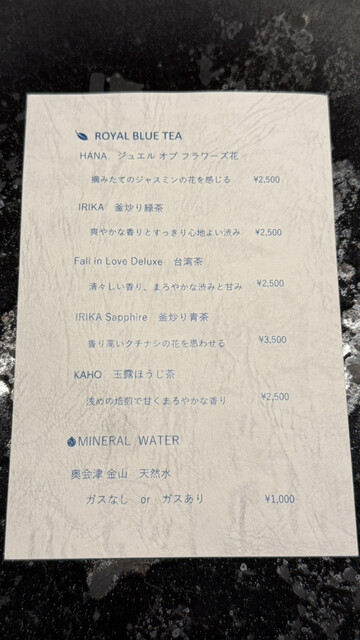 ROYAL BLUE TEA
HANA ジュエル オブ フラワーズ花
摘みたてのジャスミンの花を感じる ¥2,500
IRIKA 釜炒り緑茶
爽やかな香りとすっきり心地よい渋み ¥2,500
Fall in Love Deluxe 台湾茶
清々しい香り、まろやかな渋みと甘み ¥2,500
IRIKA Sapphire 釜炒り青茶
香り高いクチナシの花を思わせる ¥3,500
KAHO 玉露ほうじ茶
浅めの焙煎で甘くまろやかな香り ¥2,500
MINERAL WATER
奥会津 金山 天然水
ガスなし or ガスあり ¥1,000